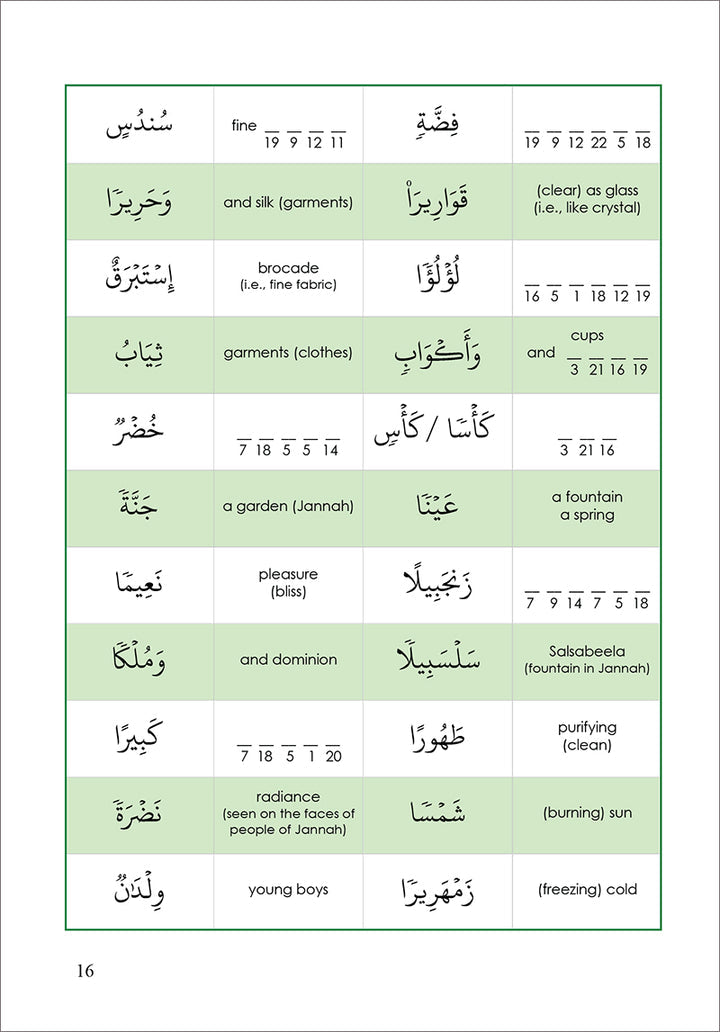 سُندُسٍ fine __ __ __ __ فِضَّةٍ __ __ __ __ __ __
19 9 12 11 19 9 12 22 5 18
وَحَرِيرًا and silk (garments) قَوَارِيرَا۠ (clear) as glass
(i.e., like crystal)
إِسْتَبْرَقٌ brocade
(i.e., fine fabric) لُؤْلُؤًا __ __ __ __ __ __
16 5 1 18 12 19
ثِيَابُ garments (clothes) وَأَكْوَابٍ cups
and __ __ __ __
3 21 16 19
خُضْرٌ __ __ __ __ __ كَأْسًا / كَأْسٍ __ __ __
7 18 5 5 14 3 21 16
جَنَّةً a garden (Jannah) عَيْنًا a fountain
a spring
نَعِيمًا pleasure
(bliss) زَنجَبِيلًا __ __ __ __ __ __
7 9 14 7 5 18
وَمُلْكًا and dominion سَلْسَبِيلًا Salsabeela
(fountain in Jannah)
كَبِيرًا __ __ __ __ __ طَهُورًا purifying
(clean)
7 18 5 1 20
نَضْرَةً radiance
(seen on the faces of
people of Jannah) شَمْسًا (burning) sun
وِلْدَٰنٌ young boys زَمْهَرِيرًا (freezing) cold
16